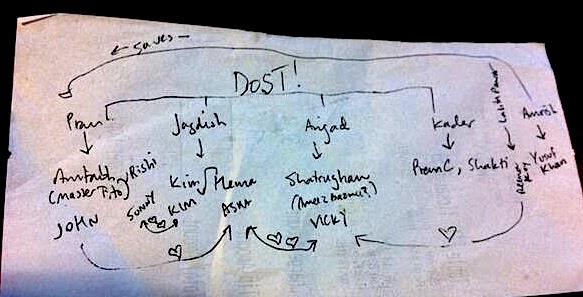 ← saves —
DOST!
Pran Jagdish Amjad Kader Lalita Pawar Amrish
Amitabh Rishi Kim Hema Shatrughan Prem C, Shakti Yusuf Khan
(Master Tito) (Amir Bazmi?)
JOHN SUNNY KIM ASHA VICKY